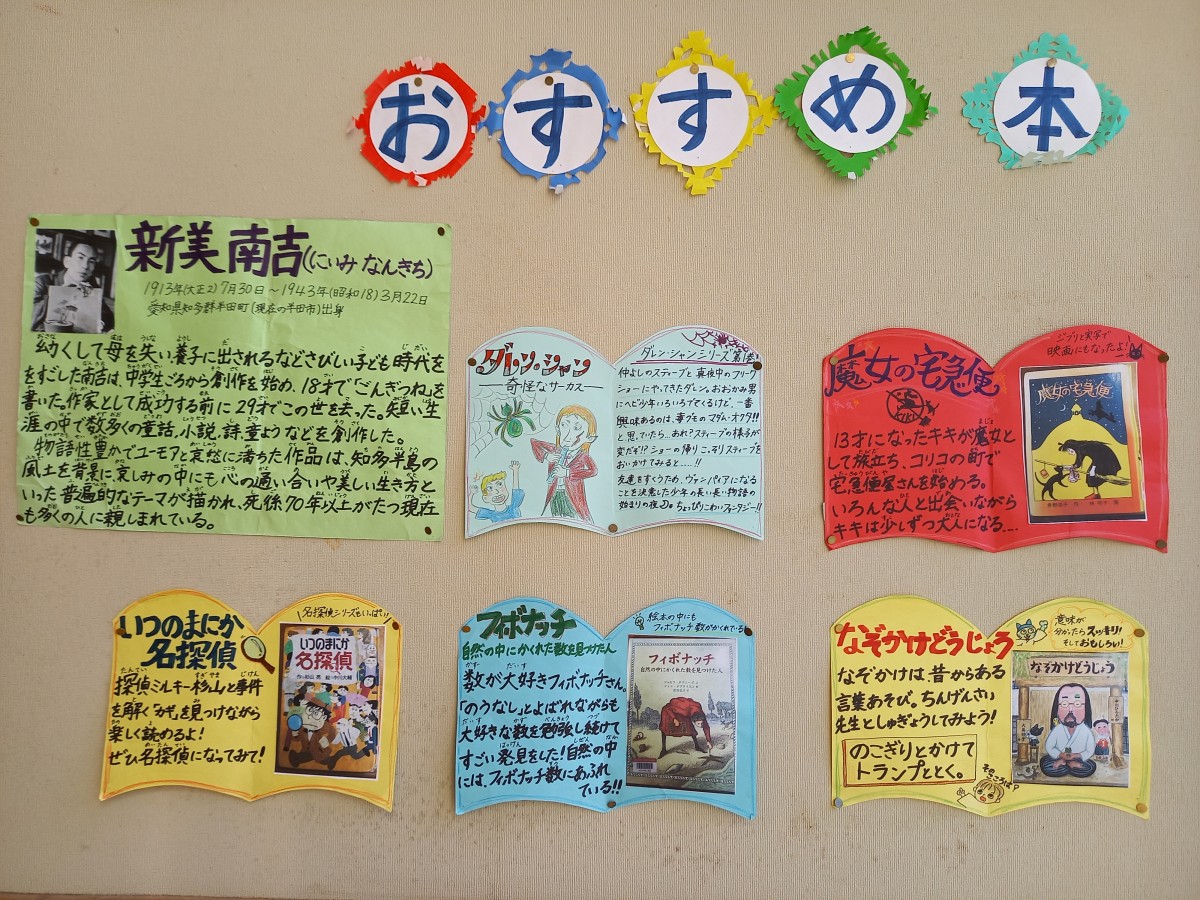 おすすめ 本
新美 南吉(にいみ なんきち)
1913年(大正2)7月30日～1943年(昭和18)3月22日
愛知県知多群半田町(現在の半田市)出身
幼くして母を失い、養子に出されるなどさびしい子ども時代を
をすごした南吉は、中学生ごろから創作を始め、18才で「ごんぎつね」を
書いた。作家として成功する前に29才でこの世を去った。短い生
涯の中で数多くの童話、小説、詩、童ようなどを創作した。
物語性豊かでユーモアと哀愁に満ちた作品は、知多半島の
風土を背景に、哀しみの中にも心の通い合いや美しい生き方と
いった普遍的なテーマが描かれ、死後70年以上がたつ現在
も多くの人に親しまれている。
ダレン・シャン
奇怪なサーカス
ダレン・シャンシリーズ第1巻
仲よしのスティーブと真夜中のフリーク
ショーにやってきたダレン。おおかみ男
にヘビ少年いろいろでてくるけど、一番
興味あるのは、毒グモのマダム・オクタ!!
と思っていたら…あれ?スティーブの様子が
変だぞ!?ショーの帰りこっそりスティーブを
おいかけてみると……!!
友達をすくうため、ヴァンパイアになる
ことを決意した少年の長い長い物語の
始まりの夜🌙。ちょっぴりこわいファンタジー!!
魔女の宅急便
KIKI
ジブリと実写で
映画にもなったよ!
13才になったキキが魔女と
して旅立ち、コリコの町で
宅急便屋さんを始める。
いろんな人と出会いながら
キキは少しずつ大人になる….
魔女の宅急便
いつのまにか
名探偵
名探偵シリーズもいっぱい!!
探偵ミルキー杉山と事件
を解く「かぎ」を見つけながら
楽しく読めるよ!
ぜひ名探偵になってみて!
いつのまにか
名探偵
作・杉山 亮 絵・中川大輔
フィボナッチ
自然の中にかくれた数を見つけた人
絵本の中にも
フィボナッチ数がかくれている
数が大好きフィボナッチさん。
「のうなし」とよばれながらも
大好きな数を勉強し続けて
すごい発見をした!自然の中
には、フィボナッチ数にあふれ
ている!!
フィボナッチ
自然の中にかくれた数を見つけた人
なぞかけどうじょう
意味が
分かったらスッキリ!
そしておもしろい!
なぞかけは昔からある
言葉あそび。ちんげんさい
先生としゅぎょうしてみよう!
のこぎりとかけて
トランプととく。
そのこころは?
なぞかけどうじょう